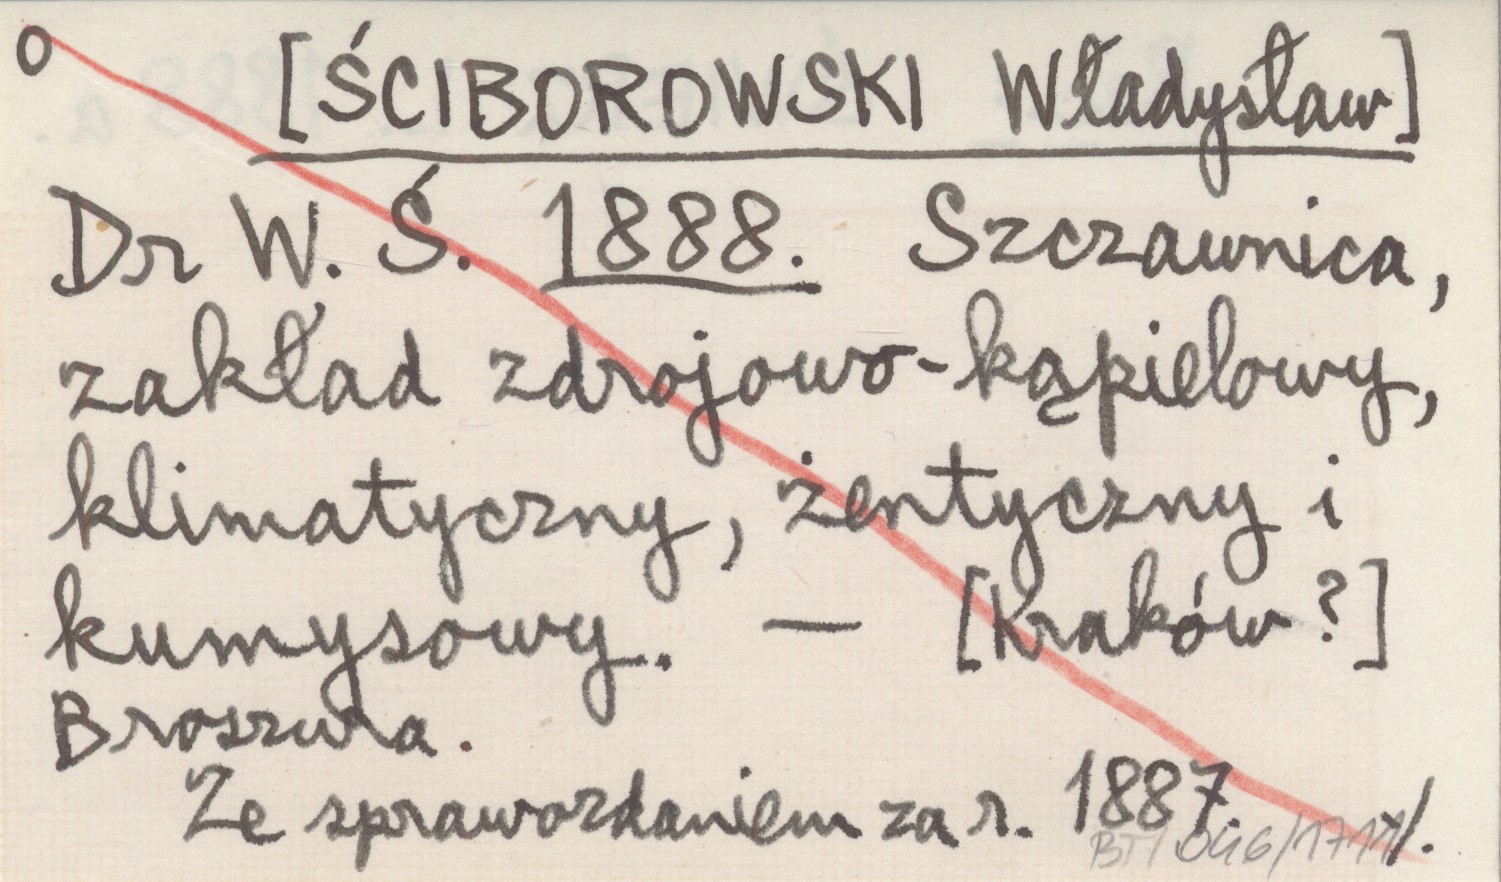 o [ŚCIBOROWSKI Władysław]
Dr W. Ś. 1888. Szczawnica,
zakład zdrojowo-kąpielowy,
klimatyczny, żentyczny i
kumysowy. — [Kraków?]
Broszura.
Ze sprawozdaniem za r. 1887. ./.
BTI 046/1711